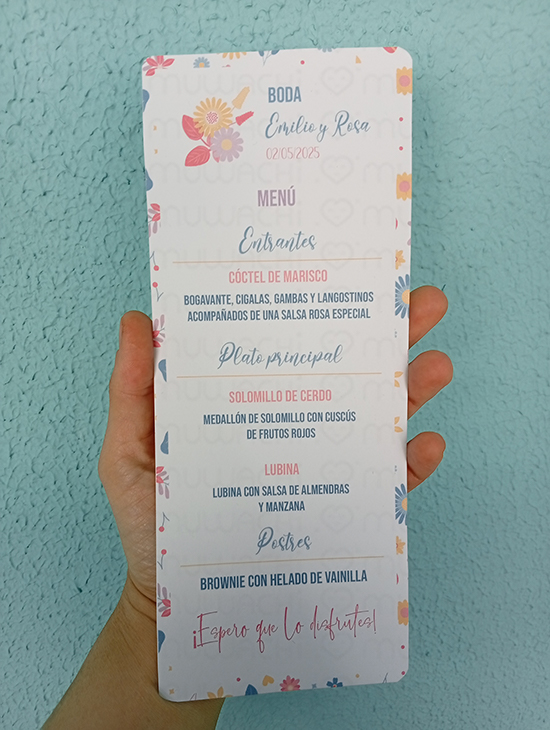 BODA
Emilio y Rosa
02/05/2025
MENÚ
Entrantes
CÓCTEL DE MARISCO
BOGAVANTE, CIGALAS, GAMBAS Y LANGOSTINOS
ACOMPAÑADOS DE UNA SALSA ROSA ESPECIAL
Plato principal
SOLOMILLO DE CERDO
MEDALLÓN DE SOLOMILLO CON CUSCÚS
DE FRUTOS ROJOS
LUBINA
LUBINA CON SALSA DE ALMENDRAS
Y MANZANA
Postres
BROWNIE CON HELADO DE VAINILLA
¡Espero que lo disfrutes!